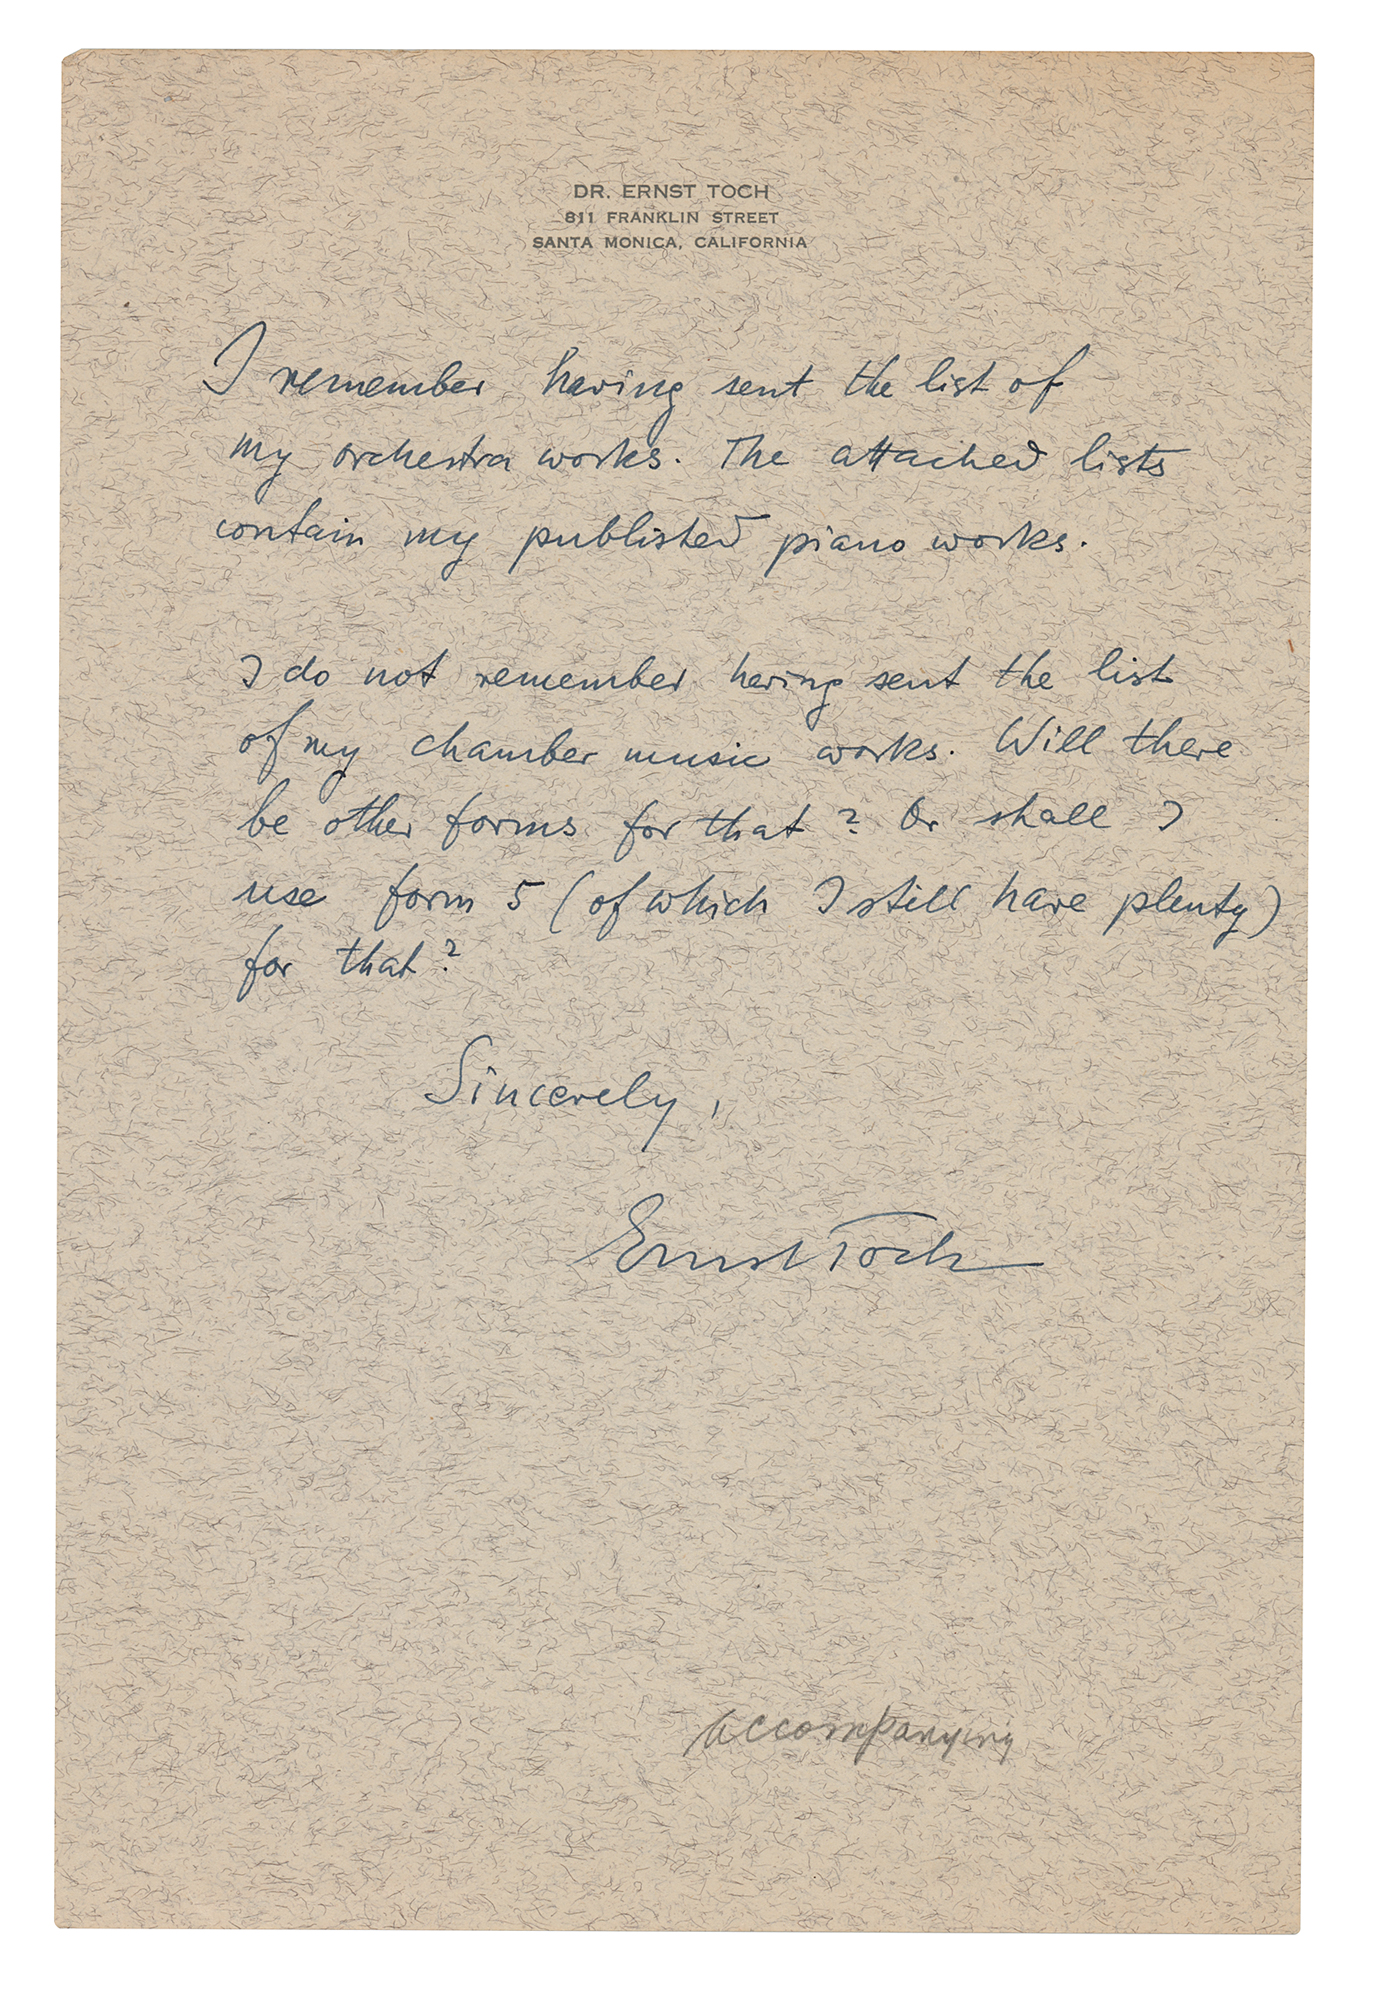 DR. ERNST TOCH
811 FRANKLIN STREET
SANTA MONICA, CALIFORNIA
I remember having sent the list of
my orchestra works. The attached lists
contain my published piano works.
I do not remember having sent the list
of my chamber music works. Will there
be other forms for that? Or shall I
use form 5 (of which I still have plenty)
for that?
Sincerely,
Ernst Toch
accompanying